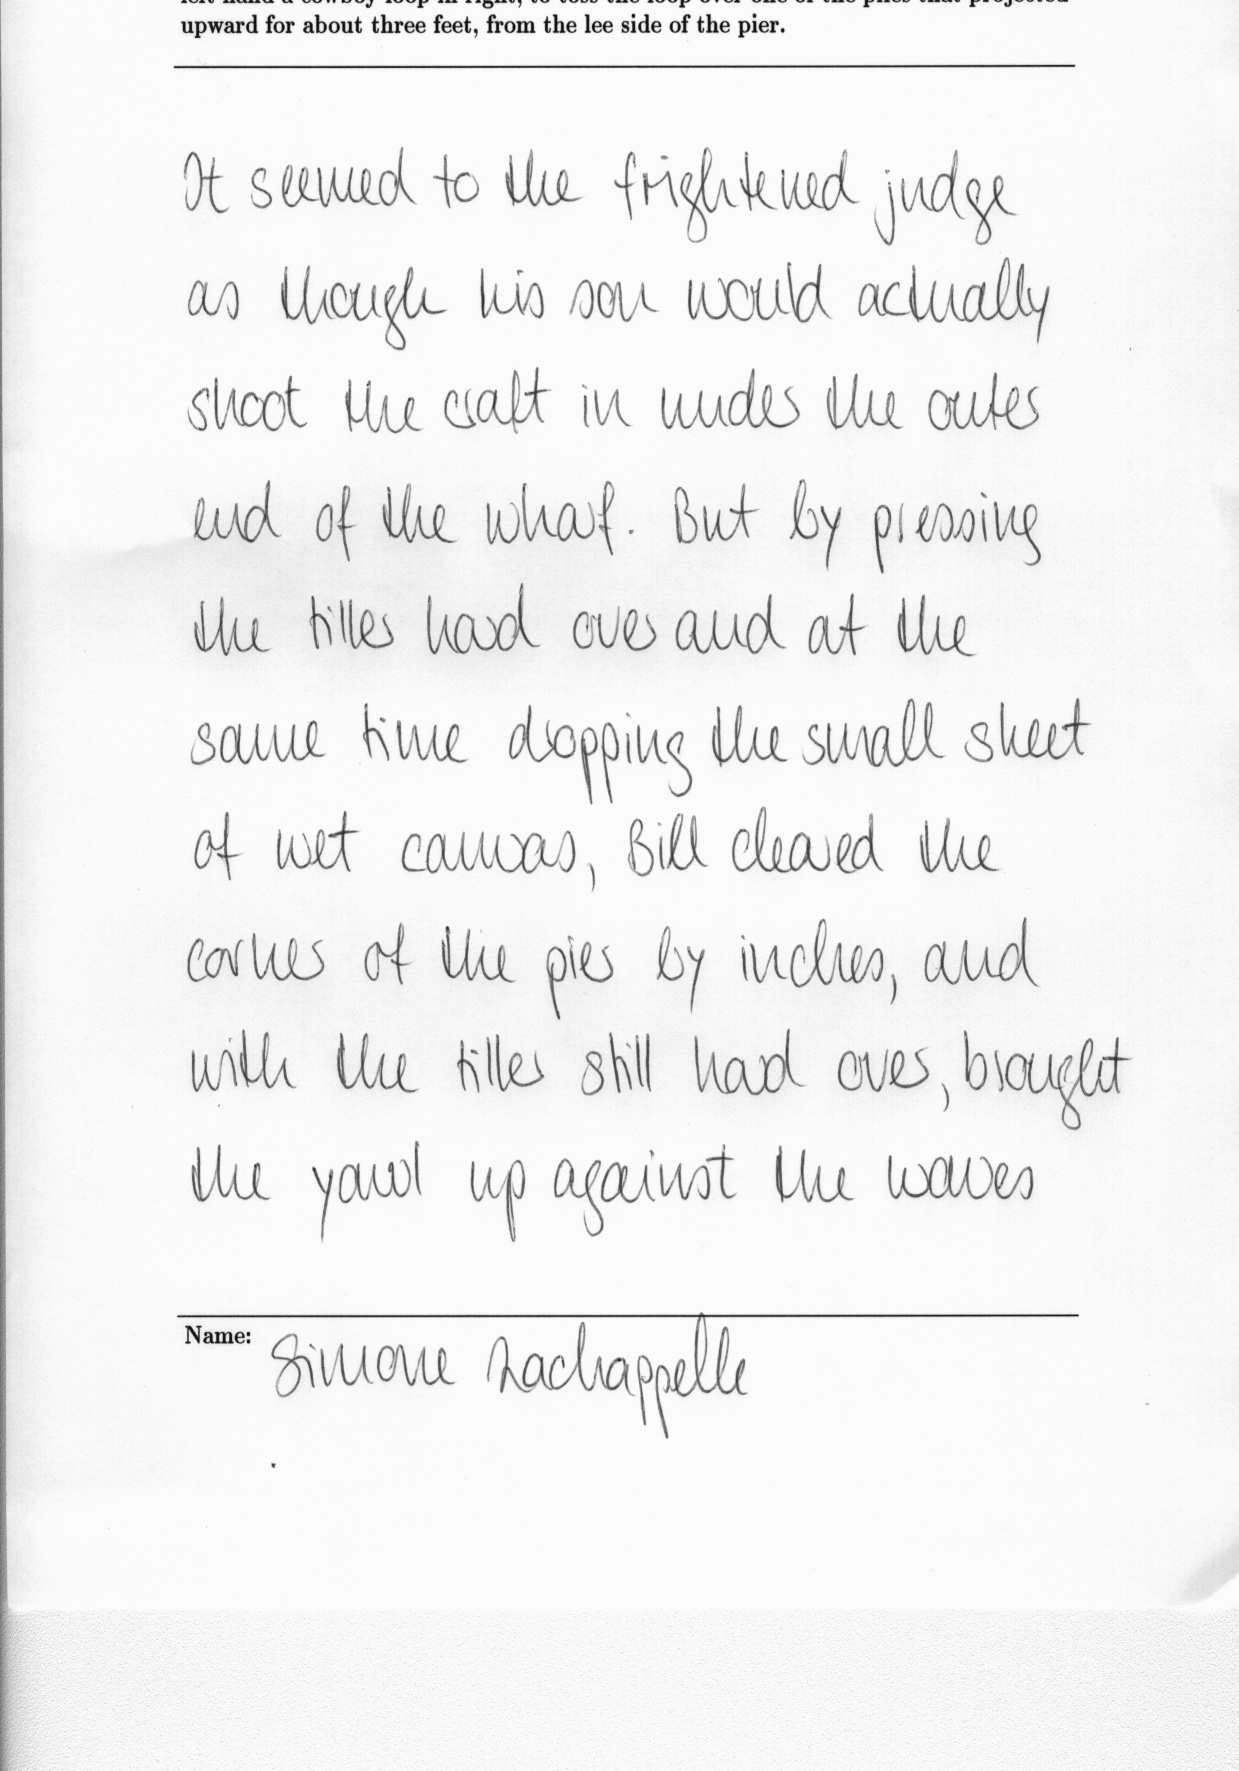 left hand a cowboy loop in right, to toss the loop over one of the piles that projected
upward for about three feet, from the lee side of the pier.
It seemed to the frightened judge
as though his son would actually
shoot the craft in under the outer
end of the wharf. But by pressing
the tiller hard over and at the
same time dropping the small sheet
of wet canvas, Bill cleared the
corner of the pier by inches, and
with the tiller still hard over, brought
the yawl up against the waves
Name: Simone Lachappelle